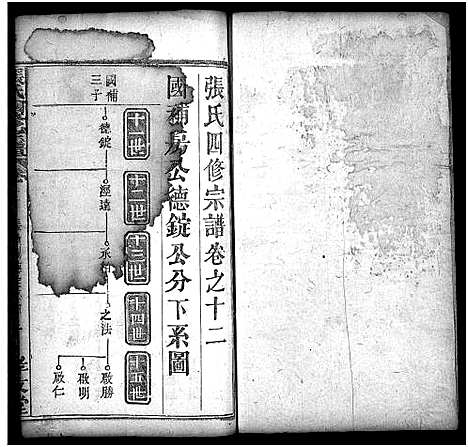 張氏四修宗譜卷之十二
國補房公德錠公分下系圖
十一世
十二世
十三世
十四世
十五世
國補
三子
德錠
之法
啟勝
啟明
啟仁